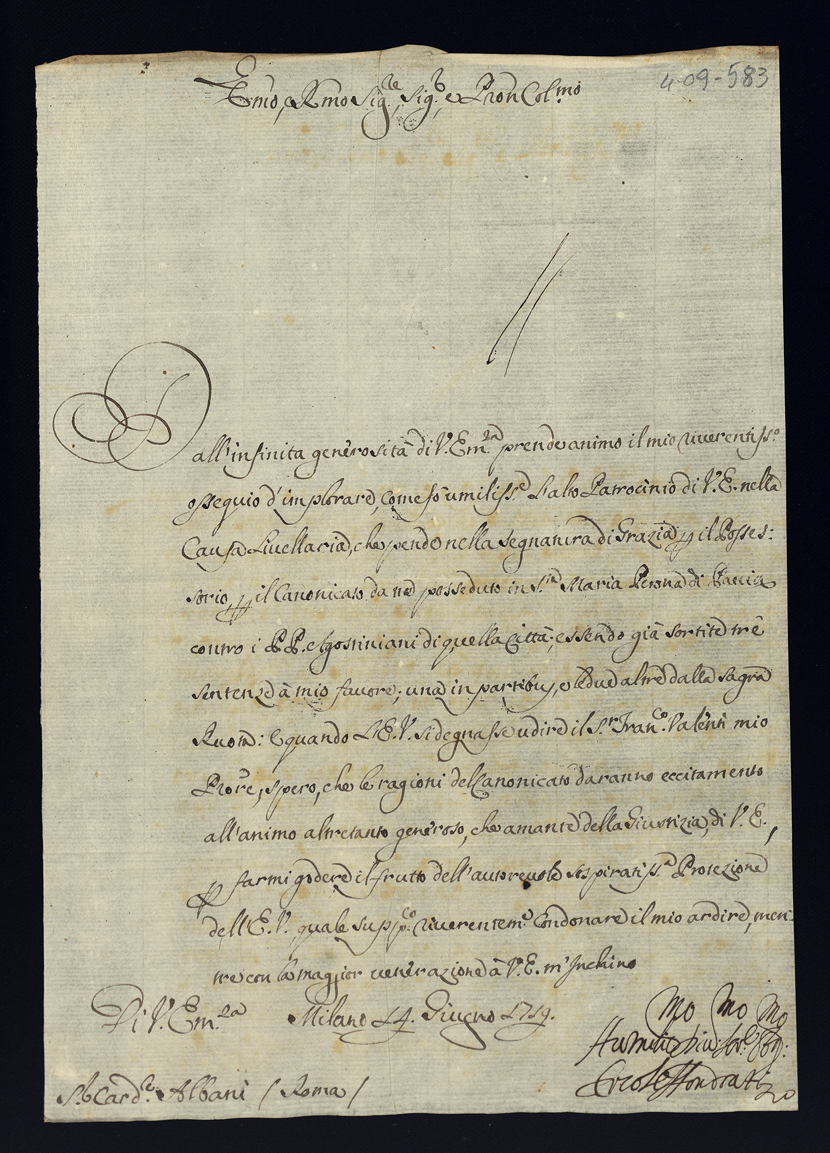 4-09-583
Emo, e Rmo Sig.re, Sig.r, e Pron Col.mo
Dall'infinita generosità di V. Em.za prende animo il mio riverentiss.o
ossequio d'implorare, come fò umiliss.e L'alto Patrocinio di V. E. nella
Causa Livellaria, che pende nella Segnatura di Grazia, p il Posses:
sorio, p il Canonicato da me posseduto in S.ta Maria Perona di Pavia
contro i P.P. Agostiniani di quella Città; essendo già sortite trè
sentenze à mio favore; una in partibus, e le due altre dalla Sagra
Ruota: E quando L'E. V. si degnasse udire il S.r Fran.co Valenti mio
Pròre, spero, che le ragioni del Canonicato daranno eccitamento
all'animo altretanto generoso, che amante della Giustizia, di V. E.,
p farmi godere il frutto dell'autorevole sospiratiss.a Protezione
dell'E. V., quale supp.co riverentem.e Condonare il mio ardire, men:
tre con la maggior venerazione à V. E. m'Inchino
Di V. Em.za Milano 14. Giugno 1719.
mo mo mo
Humil Div: Ser.e
Ercole Sfondrati
S.r Card.e Albani / Roma /